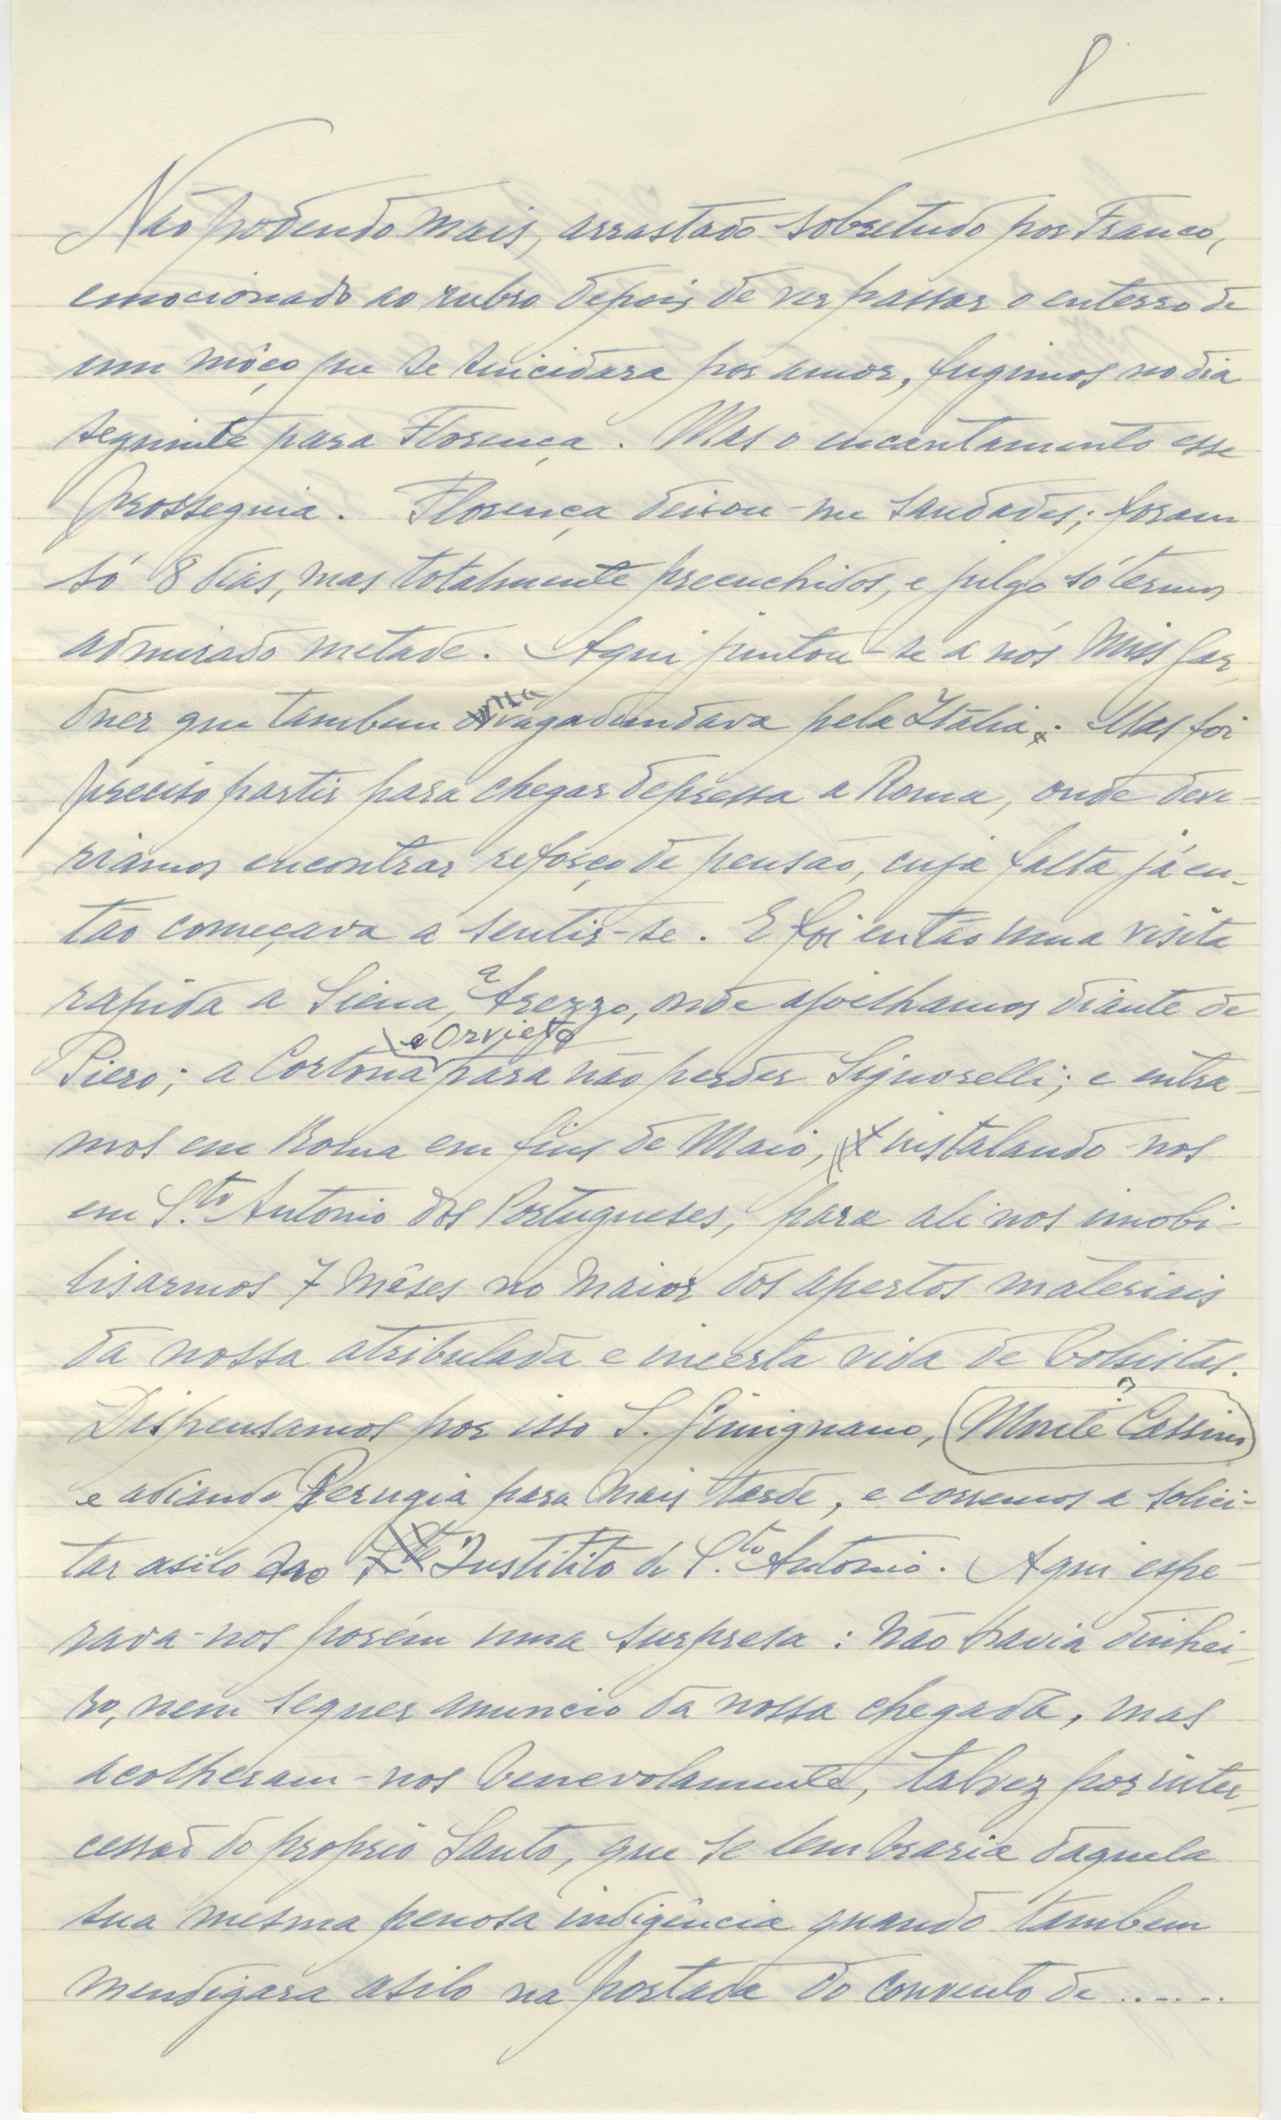 8
Não podendo mais, arrastado sobretudo por Franco,
emocionado ao rubro depois de ver passar o enterro de
um môço que se suicidara por amor, fugimos no dia
seguinte para Florença. Mas o encantamento esse
prosseguia. Florença deixou-me saudades; foram
só 8 dias, mas totalmente preenchidos, e julgo só termos
admirado metade. Aqui juntou-se a nós Miss Gar-
dner que tambem vagadundava pela Itália. Mas foi
preciso partir para chegar depressa a Roma, onde deve-
riamos encontrar reforço de pensão, cuja falta já en-
tão começava a sentir-se. E foi então uma visita
rapida a Siena, a Arezzo, onde ajoelhamos diante de
Piero; a Cortona e Orvieto para não perder Signorelli; e entra-
mos em Roma em fins de Maio, instalando-nos
em S.to Antonio dos Portugueses, para ali nos imobi-
lisarmos 7 mêses no maior dos apertos materiais
da nossa atribulada e incerta vida de bolsistas.
Dispensamos por isso S. Gimignano, (Monte Cassino) ?
e adiando Perugia para mais tarde, e corremos a solici-
tar asilo ao Instituto de S.to Antonio. Aqui espe-
rava-nos porém uma surpresa: não havia dinhei-
ro, nem sequer anuncio da nossa chegada, mas
acolheram-nos benevolamente, talvez por inter-
cessão do proprio Santo, que se lembraria daquela
sua mesma penosa indigência quando tambem
mendigara asilo na portada do convento de ......